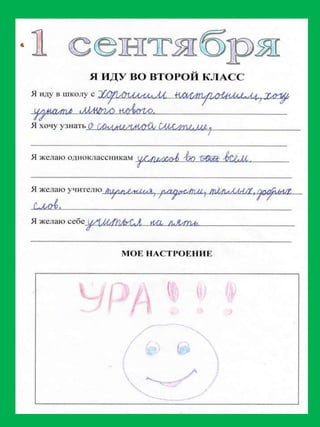 1 сентября
Я ИДУ ВО ВТОРОЙ КЛАСС
Я иду в школу с хорошим настроением, хочу
узнать много нового.
Я хочу узнать о солнечной системе,
Я желаю одноклассникам успехов во всём.
Я желаю учителю терпения, радости, тёплых, добрых
слов.
Я желаю себе учиться на пять
МОЕ НАСТРОЕНИЕ
УРА!!!